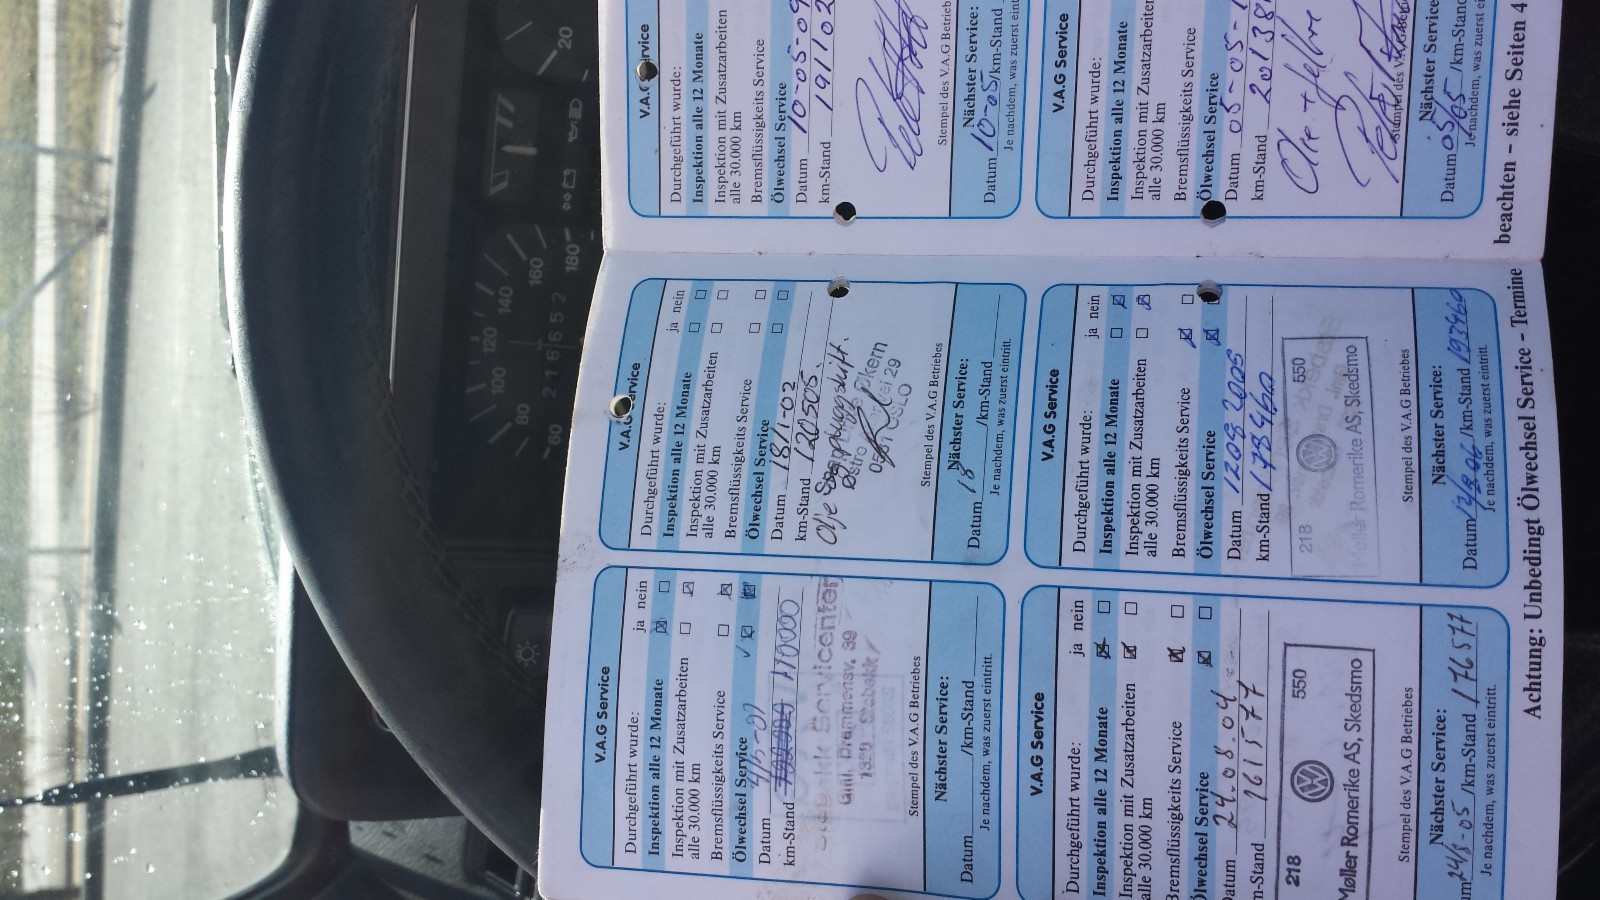 V.A.G Service
Durchgeführt wurde: ja nein
Inspektion alle 12 Monate
Inspektion mit Zusatzarbeiten
alle 30.000 km
Bremsflüssigkeits Service
Ölwechsel Service
Datum
km-Stand 110000
Servicecenter
39
Stempel des V.A.G Betriebes
Nächster Service:
Datum /km-Stand
Je nachdem, was zuerst eintritt.
V.A.G Service
Durchgeführt wurde: ja nein
Inspektion alle 12 Monate
Inspektion mit Zusatzarbeiten
alle 30.000 km
Bremsflüssigkeits Service
Ölwechsel Service
Datum 18/1-02
km-Stand 120505.
Olje
29
OSLO
Stempel des V.A.G Betriebes
Nächster Service:
Datum 18 /km-Stand
Je nachdem, was zuerst eintritt.
V.A.G Service
Durchgeführt wurde:
Inspektion alle 12 Monate
Inspektion mit Zusatzarbeiten
alle 30.000 km
Bremsflüssigkeits Service
Ölwechsel Service
Datum 10-05-09
km-Stand 191102
Stempel des V.A.G Betrieb
Nächster Service:
Datum 10-05 /km-Stand
Je nachdem, was zuerst eint
V.A.G Service
Durchgeführt wurde: ja nein
Inspektion alle 12 Monate
Inspektion mit Zusatzarbeiten
alle 30.000 km
Bremsflüssigkeits Service
Ölwechsel Service
Datum 24.08.04
km-Stand 161577
218 550
Møller Romerike AS, Skedsmo
Stempel des V.A.G Betriebes
Nächster Service:
24/8-05 /km-Stand 176577
Je nachdem, was zuerst eintritt.
V.A.G Service
Durchgeführt wurde: ja nein
Inspektion alle 12 Monate
Inspektion mit Zusatzarbeiten
alle 30.000 km
Bremsflüssigkeits Service
Ölwechsel Service
Datum 1208 2005
km-Stand 178460
218 550
Møller Romerike AS, Skedsmo
Stempel des V.A.G Betriebes
Nächster Service:
Datum /km-Stand 193460
Je nachdem, was zuerst eintritt.
V.A.G Service
Durchgeführt wurde:
Inspektion alle 12 Monate
Inspektion mit Zusatzarbeiten
alle 30.000 km
Bremsflüssigkeits Service
Ölwechsel Service
Datum 05-05-1
km-Stand 20138
Olje + felbre
Stempel des V.A.G
Nächster Service
Datum /km-Stand
Je nachdem, was zuerst ei
Achtung: Unbedingt Ölwechsel Service - Termine beachten - siehe Seiten 4
60 80 100 120 140 160 180
216652
20